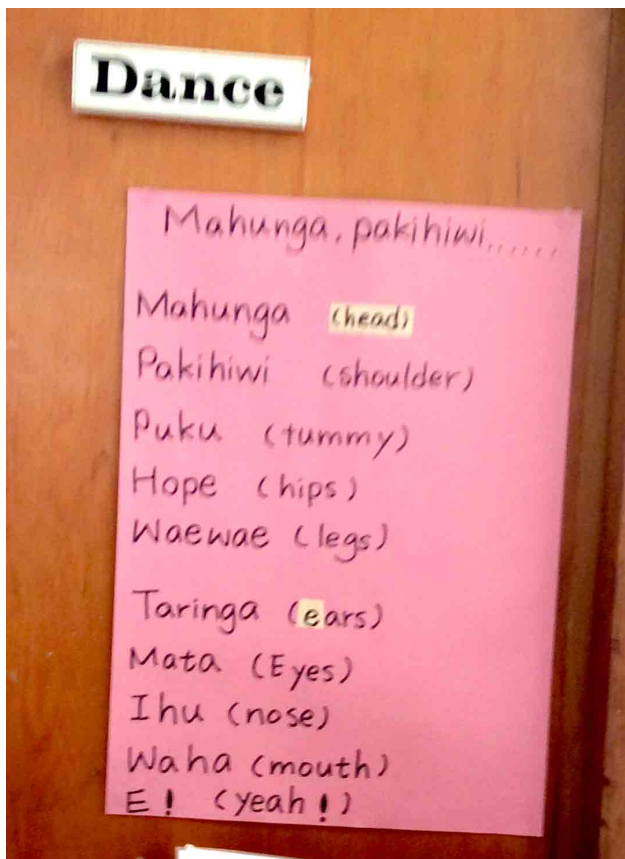 Dance
Mahunga, pakihiwi......
Mahunga (head)
Pakihiwi (shoulder)
Puku (tummy)
Hope (hips)
Waewae (legs)
Taringa (ears)
Mata (Eyes)
Ihu (nose)
Waha (mouth)
E! (yeah!)